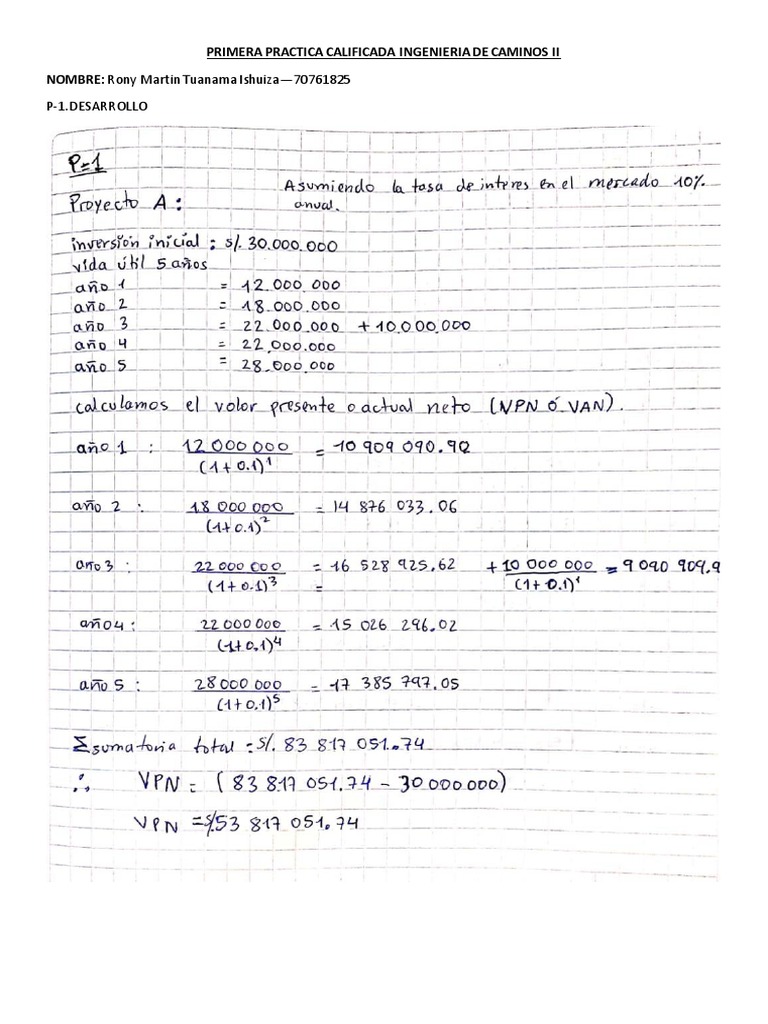 PRIMERA PRACTICA CALIFICADA INGENIERIA DE CAMINOS II
NOMBRE: Rony Martin Tuanama Ishuiza—70761825
P-1.DESARROLLO
P=1
Asumiendo la tasa de interes en el mercado 10%
Proyecto A: anual.
inversión inicial : s/. 30.000.000
vida útil 5 años
año 1 = 12.000.000
año 2 = 18.000.000
año 3 = 22.000.000 + 10.000.000
año 4 = 22.000.000
año 5 = 28.000.000
calculamos el valor presente o actual neto (VPN ó VAN).
año 1 : 12 000 000 / (1+0.1)^1 = 10 909 090.90
año 2 : 18 000 000 / (1+0.1)^2 = 14 876 033.06
año 3 : 22 000 000 / (1+0.1)^3 = 16 528 925.62 + 10 000 000 / (1+0.1)^1 = 9 090 909.9
=
año4: 22 000 000 / (1+0.1)^4 = 15 026 296.02
año 5 : 28 000 000 / (1+0.1)^5 = 17 385 797.05
Σsumatoria total = s/. 83 817 051.74
∴ VPN = (83 817 051.74 - 30 000 000)
VPN = s/.53 817 051.74